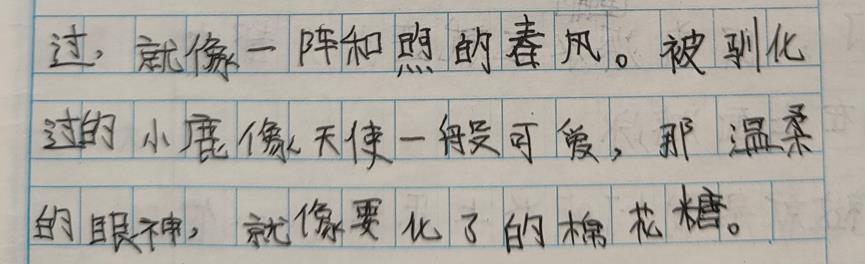 过，就像一阵和煦的春风。被驯化
过的小鹿像天使一般可爱，那温柔
的眼神，就像要化了的棉花糖。